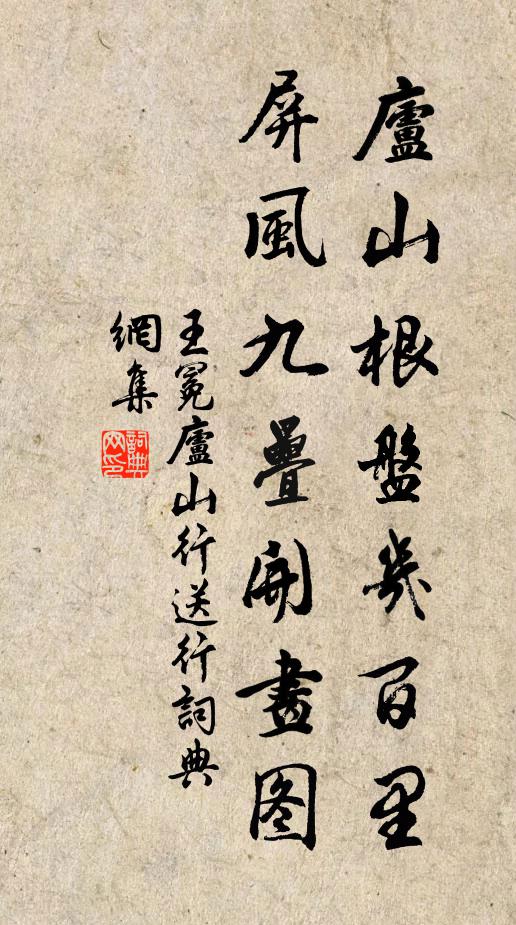 廬山根盤幾百里
屏風九疊開畫图
王冕廬山行送行詞典
網集
詞典
网印